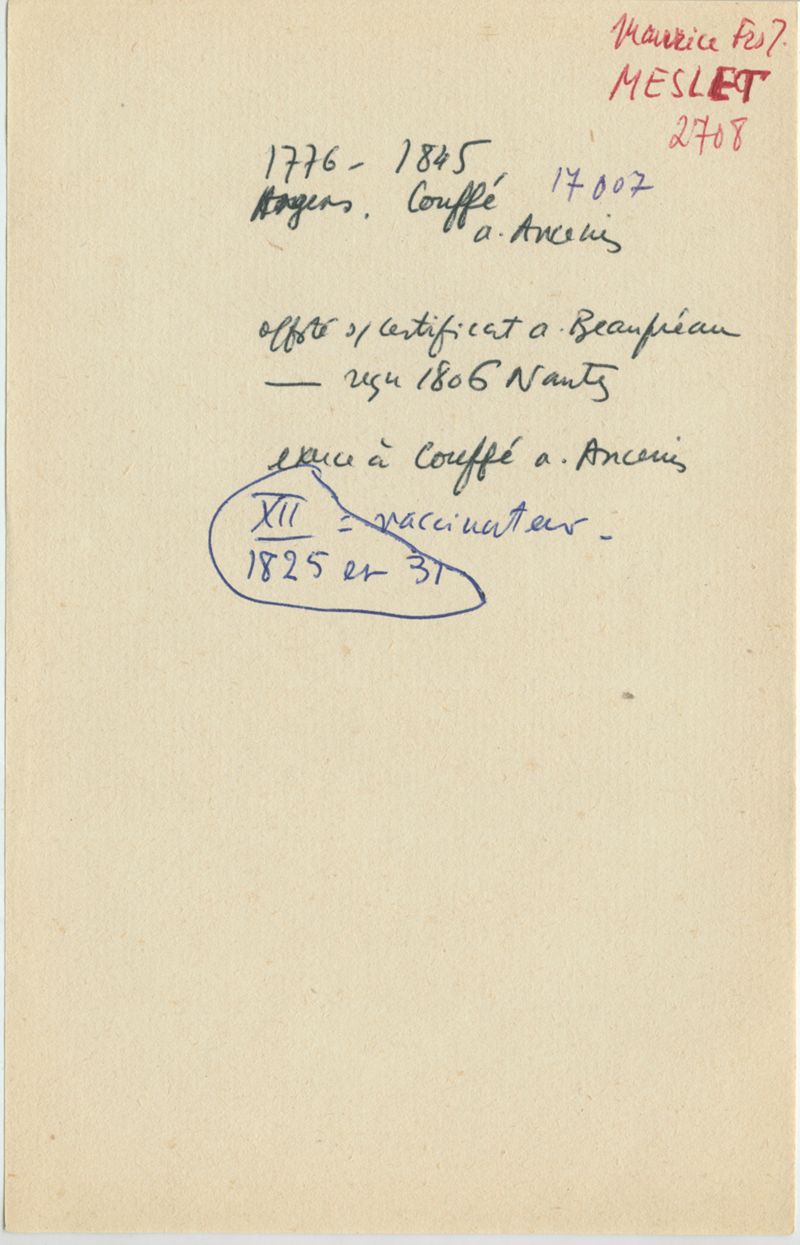 Maurice Frs J.
MESLET
2708
1776 - 1845
17007
Angers. Couffé
a. Ancenis
offsté s/ certificat a. Beaupréau
— reçu 1806 Nantes
exerce à Couffé a. Ancenis
XII = vaccinateur -
1825 et 31